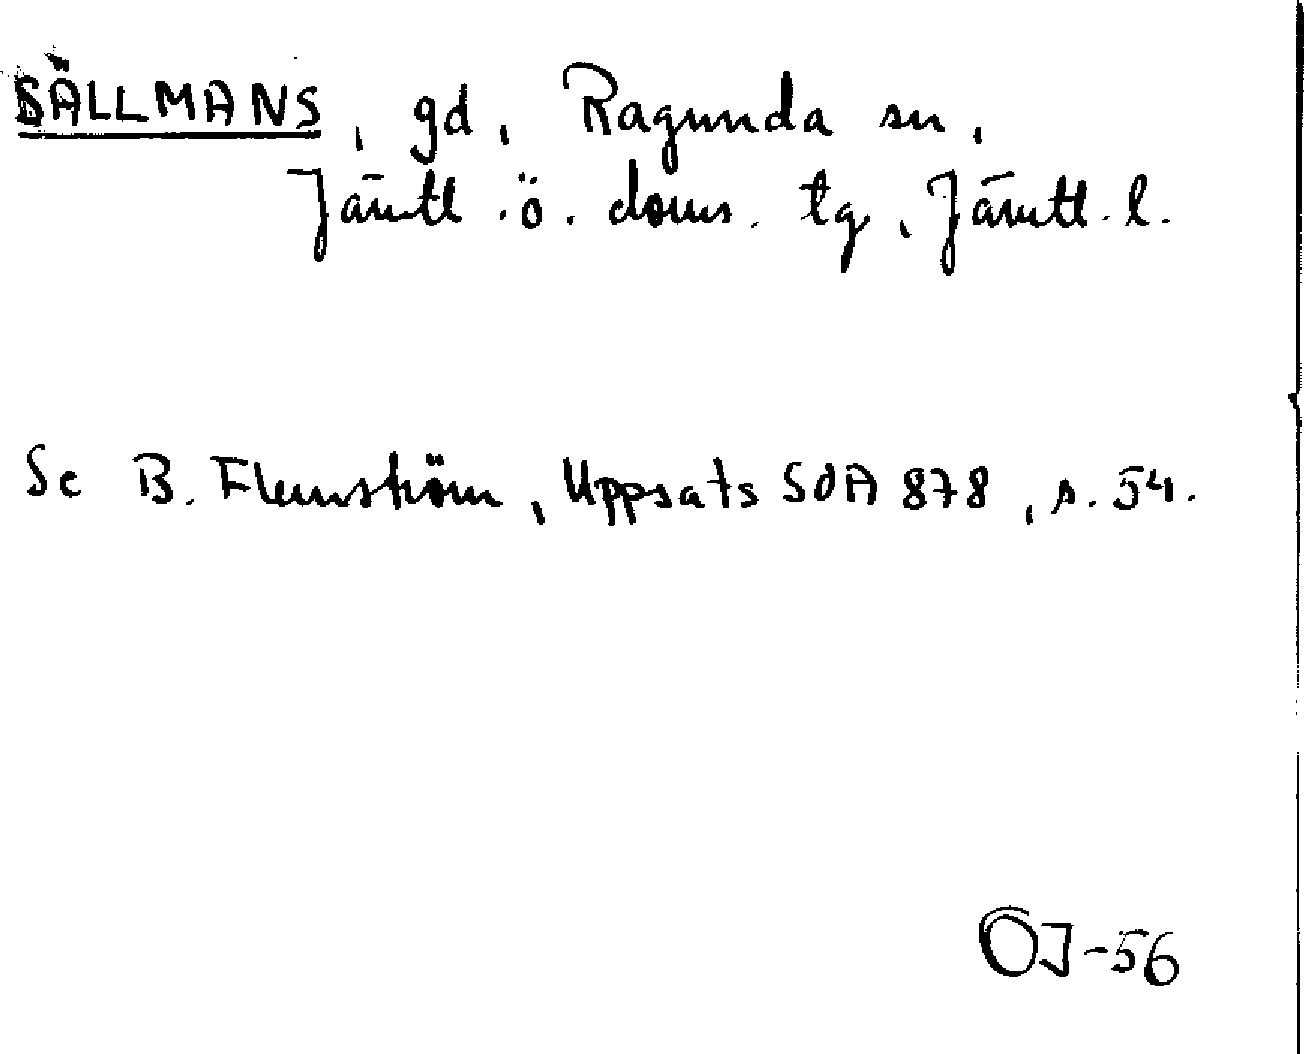 SÄLLMANS, gd, Ragunda sn,
Jämtl. ö. doms. tg, Jämtl. l.
Se B. Flemström, Uppsats SOA 878, s. 54.
OJ-56